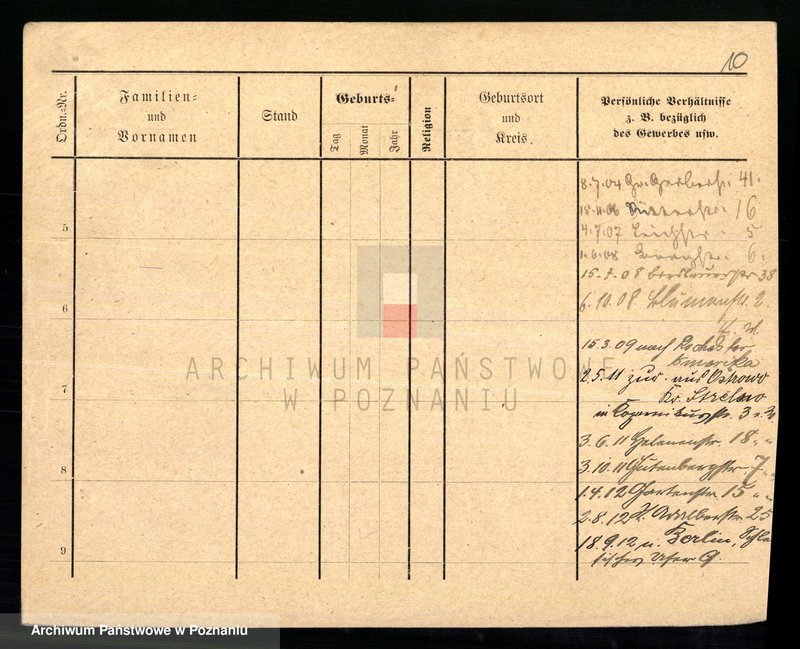 10
Ordn.-Nr.
Familien-
und
Vornamen
Stand
Geburts-
Tag
Monat
Jahr
Religion
Geburtsort
und
Kreis.
Persönliche Verhältnisse
z. B. bezüglich
des Gewerbes usw.
8.7.04 Gr. Gerberstr. 41.
Ritterstr. 16
5
4.7.07 Teichstr. 5
08 6.
15.7.08 Breslauerstr 38
6
6.10.08 Blumenstr. 2.
15.3.09 nach Rochester
Amerika
2.5.11 zur. aus Ostrowo
7
Kr. Strelno
in 3
3.6.11 Helenenstr. 18
8
3.10.11 Gutenbergstr. 7
1.4.12 Gartenstr. 15
2.8.12 Adalbertstr. 25
9
18.9.12 n. Berlin, Schle
sisches Ufer 9.
ARCHIWUM PAŃSTWOWE
W POZNANIU
Archiwum Państwowe w Poznaniu